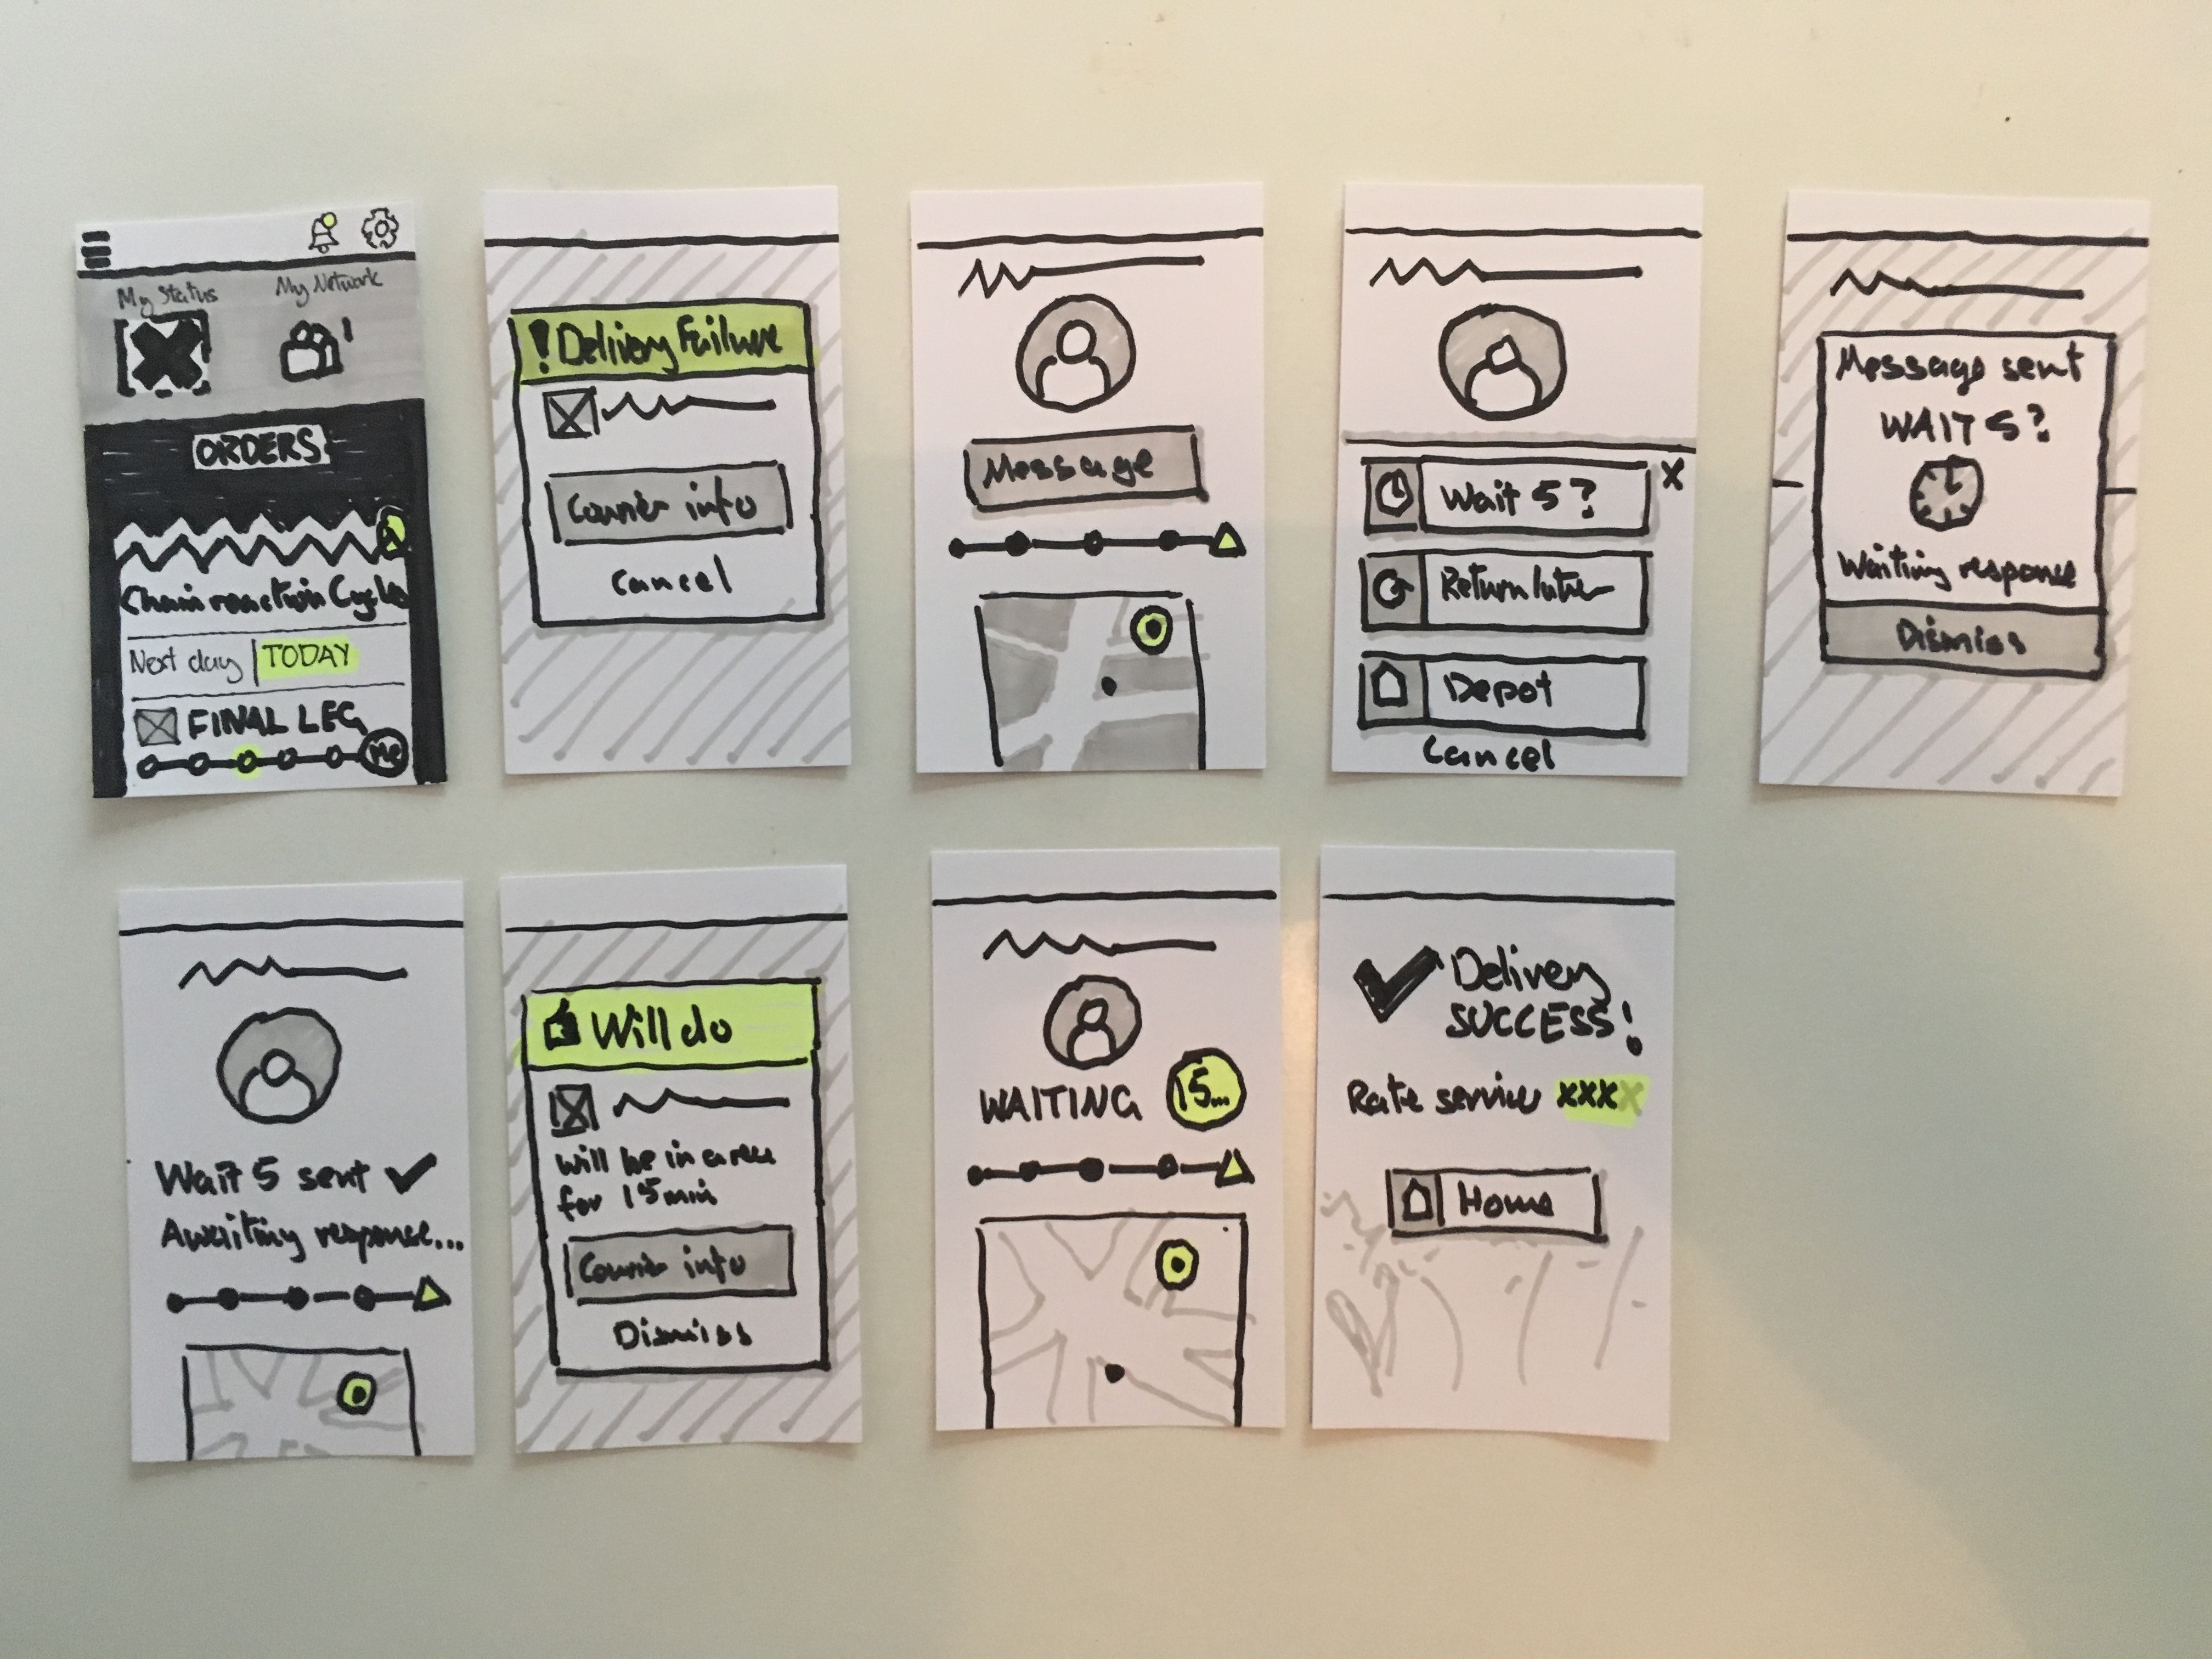 My Status
My Network
ORDERS
Chain reaction Cycles
Next day
TODAY
FINAL LEG
Me
! Delivery Failure
Courier info
Cancel
Message
Wait 5?
x
Return later
Depot
Cancel
Message sent
WAIT 5?
Waiting response
Dismiss
Wait 5 sent
Awaiting response...
Will do
Will be in area
for 15 min
Courier info
Dismiss
WAITING
15...
Delivery
SUCCESS!
Rate service xxxx
Home